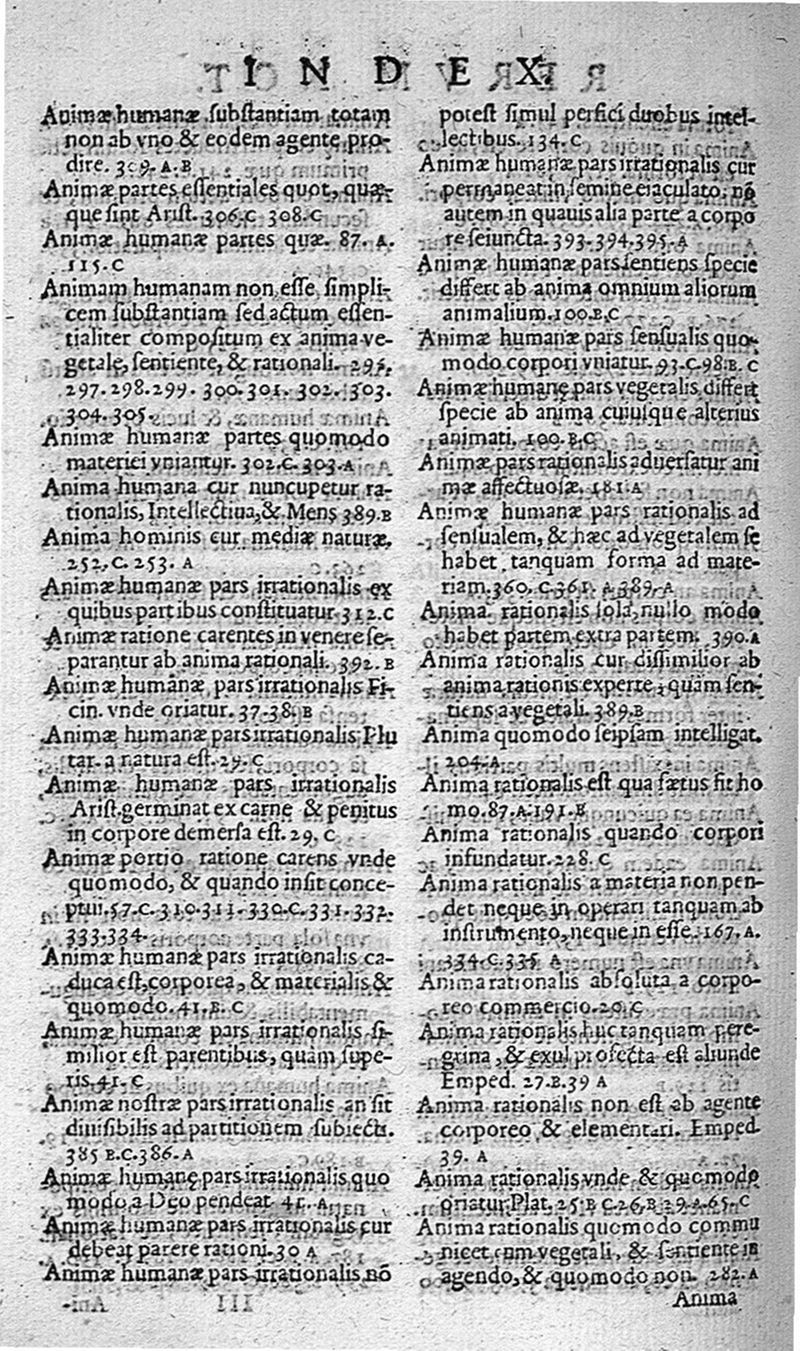 INDEX.
Animæ humanæ substantiam totam
non ab vno & eodem agente pro-
dire. 309. A. B
Animæ partes essentiales quot, quæ-
que sint Arist. 306. C 308. C
Animæ humanæ partes quæ. 87. A.
115. C
Animam humanam non esse simpli-
cem substantiam sed actum essen-
tialiter compositum ex anima ve-
getale, sentiente, & rationali. 295.
297. 298. 299. 300. 301. 302. 303.
304. 305.
Animæ humanæ partes quomodo
materiei vniantur. 302. C. 303. A
Anima humana cur nuncupetur ra-
tionalis, Intellectiua, & Mens 389. B
Anima hominis cur mediæ naturæ.
252. C. 253. A
Animæ humanæ pars irrationalis ex
quibus partibus constituatur 312. C
Animæ ratione carentes in venere se-
parantur ab anima rationali. 392. B
Animæ humanæ pars irrationalis Fi-
cin. vnde oriatur. 37. 38. B
Animæ humanæ pars irrationalis Plu
tar. a natura est. 29. C
Animæ humanæ pars irrationalis
Arist. germinat ex carne & penitus
in corpore demersa est. 29. C
Animæ portio ratione carens vnde
quomodo, & quando insit conce-
ptui. 57. C. 310. 311. 330. C. 331. 332.
333. 334.
Animæ humanæ pars irrationalis ca-
duca est, corporea, & materialis &
quomodo. 41. B. C
Animæ humanæ pars irrationalis si-
milior est parentibus, quàm supe-
ris. 41. C
Animæ nostræ pars irrationalis an sit
diuisibilis ad partitionem subiecti.
385 B. C. 386. A
Animæ humanę pars irrationalis quo
modo a Deo pendeat 41. A
Animæ humanæ pars irrationalis cur
debeat parere rationi. 30 A
Animæ humanæ pars irrationalis nõ
potest simul perfici duobus intel-
lectibus. 134. C
Animæ humanæ pars irrationalis cur
permaneat in semine eiaculato, nõ
autem in quauis alia parte a corpo
re seiuncta. 393. 394. 395. A
Animæ humanæ pars sentiens specie
differt ab anima omnium aliorum
animalium. 100. B. C
Animæ humanæ pars sensualis quo-
modo corpori vniatur. 93. C. 98. B. C
Animæ humanę pars vegetalis differt
specie ab anima cuiusque alterius
animati. 100. B. C
Animæ pars rationalis aduersatur ani
mæ affectuosæ. 181. A
Animæ humanæ pars rationalis ad
sensualem, & hæc ad vegetalem se
habet tanquam forma ad mate-
riam. 360. C. 361. A. 389. A
Anima rationalis sola, nullo modo
habet partem extra partem. 390. A
Anima rationalis cur dissimilior ab
anima rationis experte, quàm sen-
tiens a vegetali. 389. B
Anima quomodo seipsam intelligat.
204. A
Anima rationalis est qua fætus fit ho
mo. 87. A. 191. B
Anima rationalis quando corpori
infundatur. 228. C
Anima rationalis a materia non pen-
det neque in operari tanquam ab
instrumento, neque in esse. 167. A.
334. C. 335 A
Anima rationalis absoluta a corpo-
reo commercio. 29. C
Anima rationalis huc tanquam pere-
grina, & exul profecta est aliunde
Emped. 27. B. 39 A
Anima rationalis non est ab agente
corporeo & elementari. Emped.
39. A
Anima rationalis vnde & quomodo
oriatur Plat. 25. B C. 26. B. 29. A. 65. C
Anima rationalis quomodo commu
nicet cum vegetali, & sentiente in
agendo, & quomodo non. 282. A
Anima